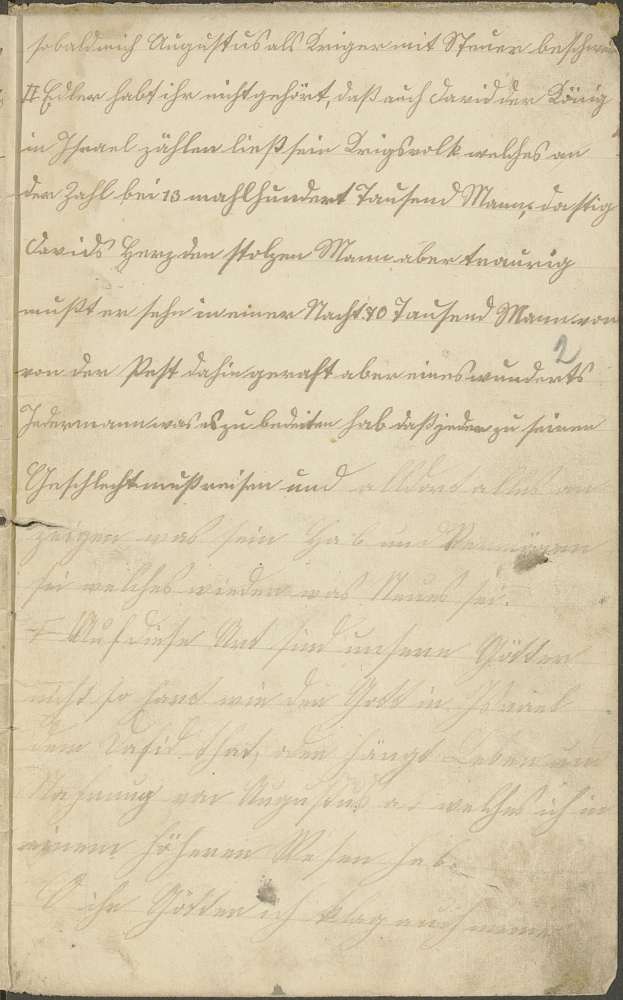 sobald mich Augustus als Kriger mit Steuer beschwer
II Edler habt ihr nicht gehört, daß auch David der König
in Israel zählen ließ sein Krigsvolk welches an
der Zahl bei 13 mahlhundert Tausend Mann, da stig
Davids Herz den stolzen Mann aber traurig
mußt er sehn in einer Nacht 70 Tausend Mann von
2
von der Pest dahin geraft aber eines wunderts
Jedermann was es zu bedeiten hab daß jeder zu seinen
Geschlecht muß reisen und alldort alles an
zeigen was sein Hab und Vermögen
sei welches wieder was Neues sei.
I Auf diese Art sind unsere Götter
nicht so hart wie der Gott in Israel
dem David that, oder hängt Leben und
Nahrung von Augustus ab welches ich in
einem höheren Wesen hab.
O ihr Götter ich klag euch meine